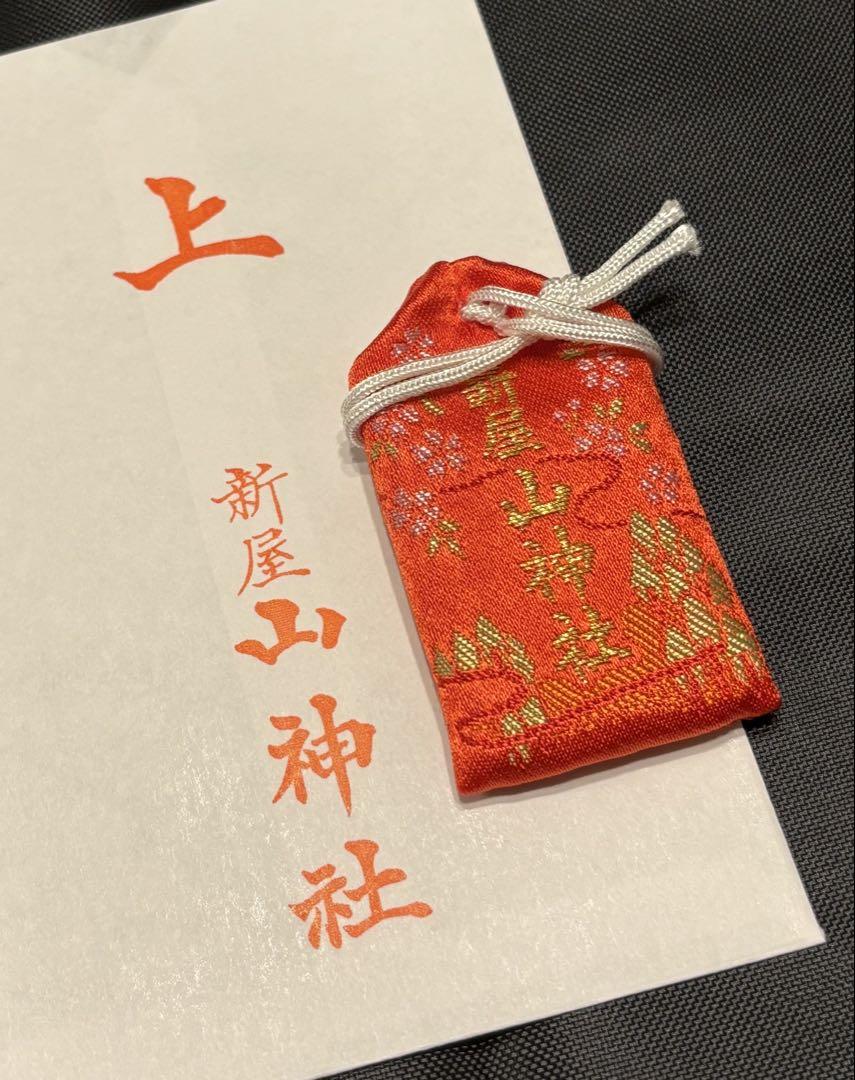 上
新屋山神社
新屋山神社